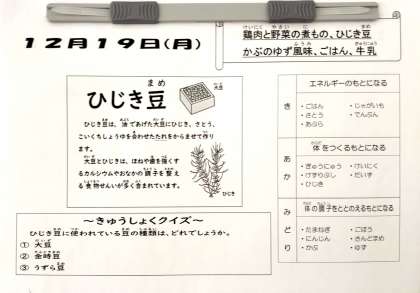 12月19日(月)
鶏肉と野菜の煮もの、ひじき豆
かぶのゆず風味、ごはん、牛乳
ひじき豆
大豆
ひじき豆は、油であげた大豆にひじき、さとう、
こいくちしょうゆを合わせたたれをからませて作り
ます。
大豆とひじきは、ほねや歯を強くす
るカルシウムやおなかの調子を整え
る食物せんいが多く含まれています。
ひじき
～きゅうしょくクイズ～
ひじき豆に使われている豆の種類は、どれでしょうか。
① 大豆
② 金時豆
③ うずら豆
エネルギーのもとになる
き
・ごはん ・じゃがいも
・さとう ・でんぷん
・あぶら
体をつくるもとになる
あか
・ぎゅうにゅう ・けいにく
・けずりぶし ・だいず
・ひじき
体の調子をととのえるもとになる
みどり
・たまねぎ ・ごぼう
・にんじん ・きんとまめ
・かぶ ・ゆず